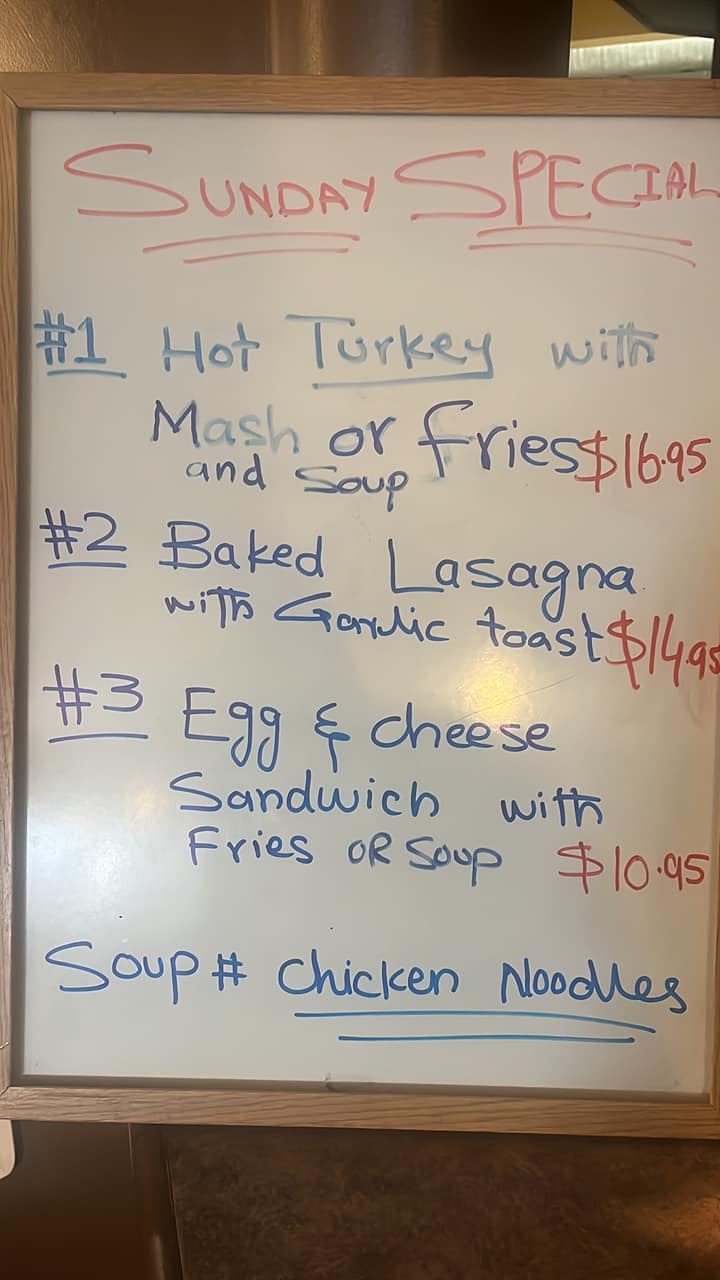 SUNDAY SPECIAL
#1 Hot Turkey with
Mash or fries $16.95
and Soup
#2 Baked Lasagna
with Garlic toast $14.95
#3 Egg & cheese
Sandwich with
Fries OR Soup $10.95
Soup # Chicken Noodles